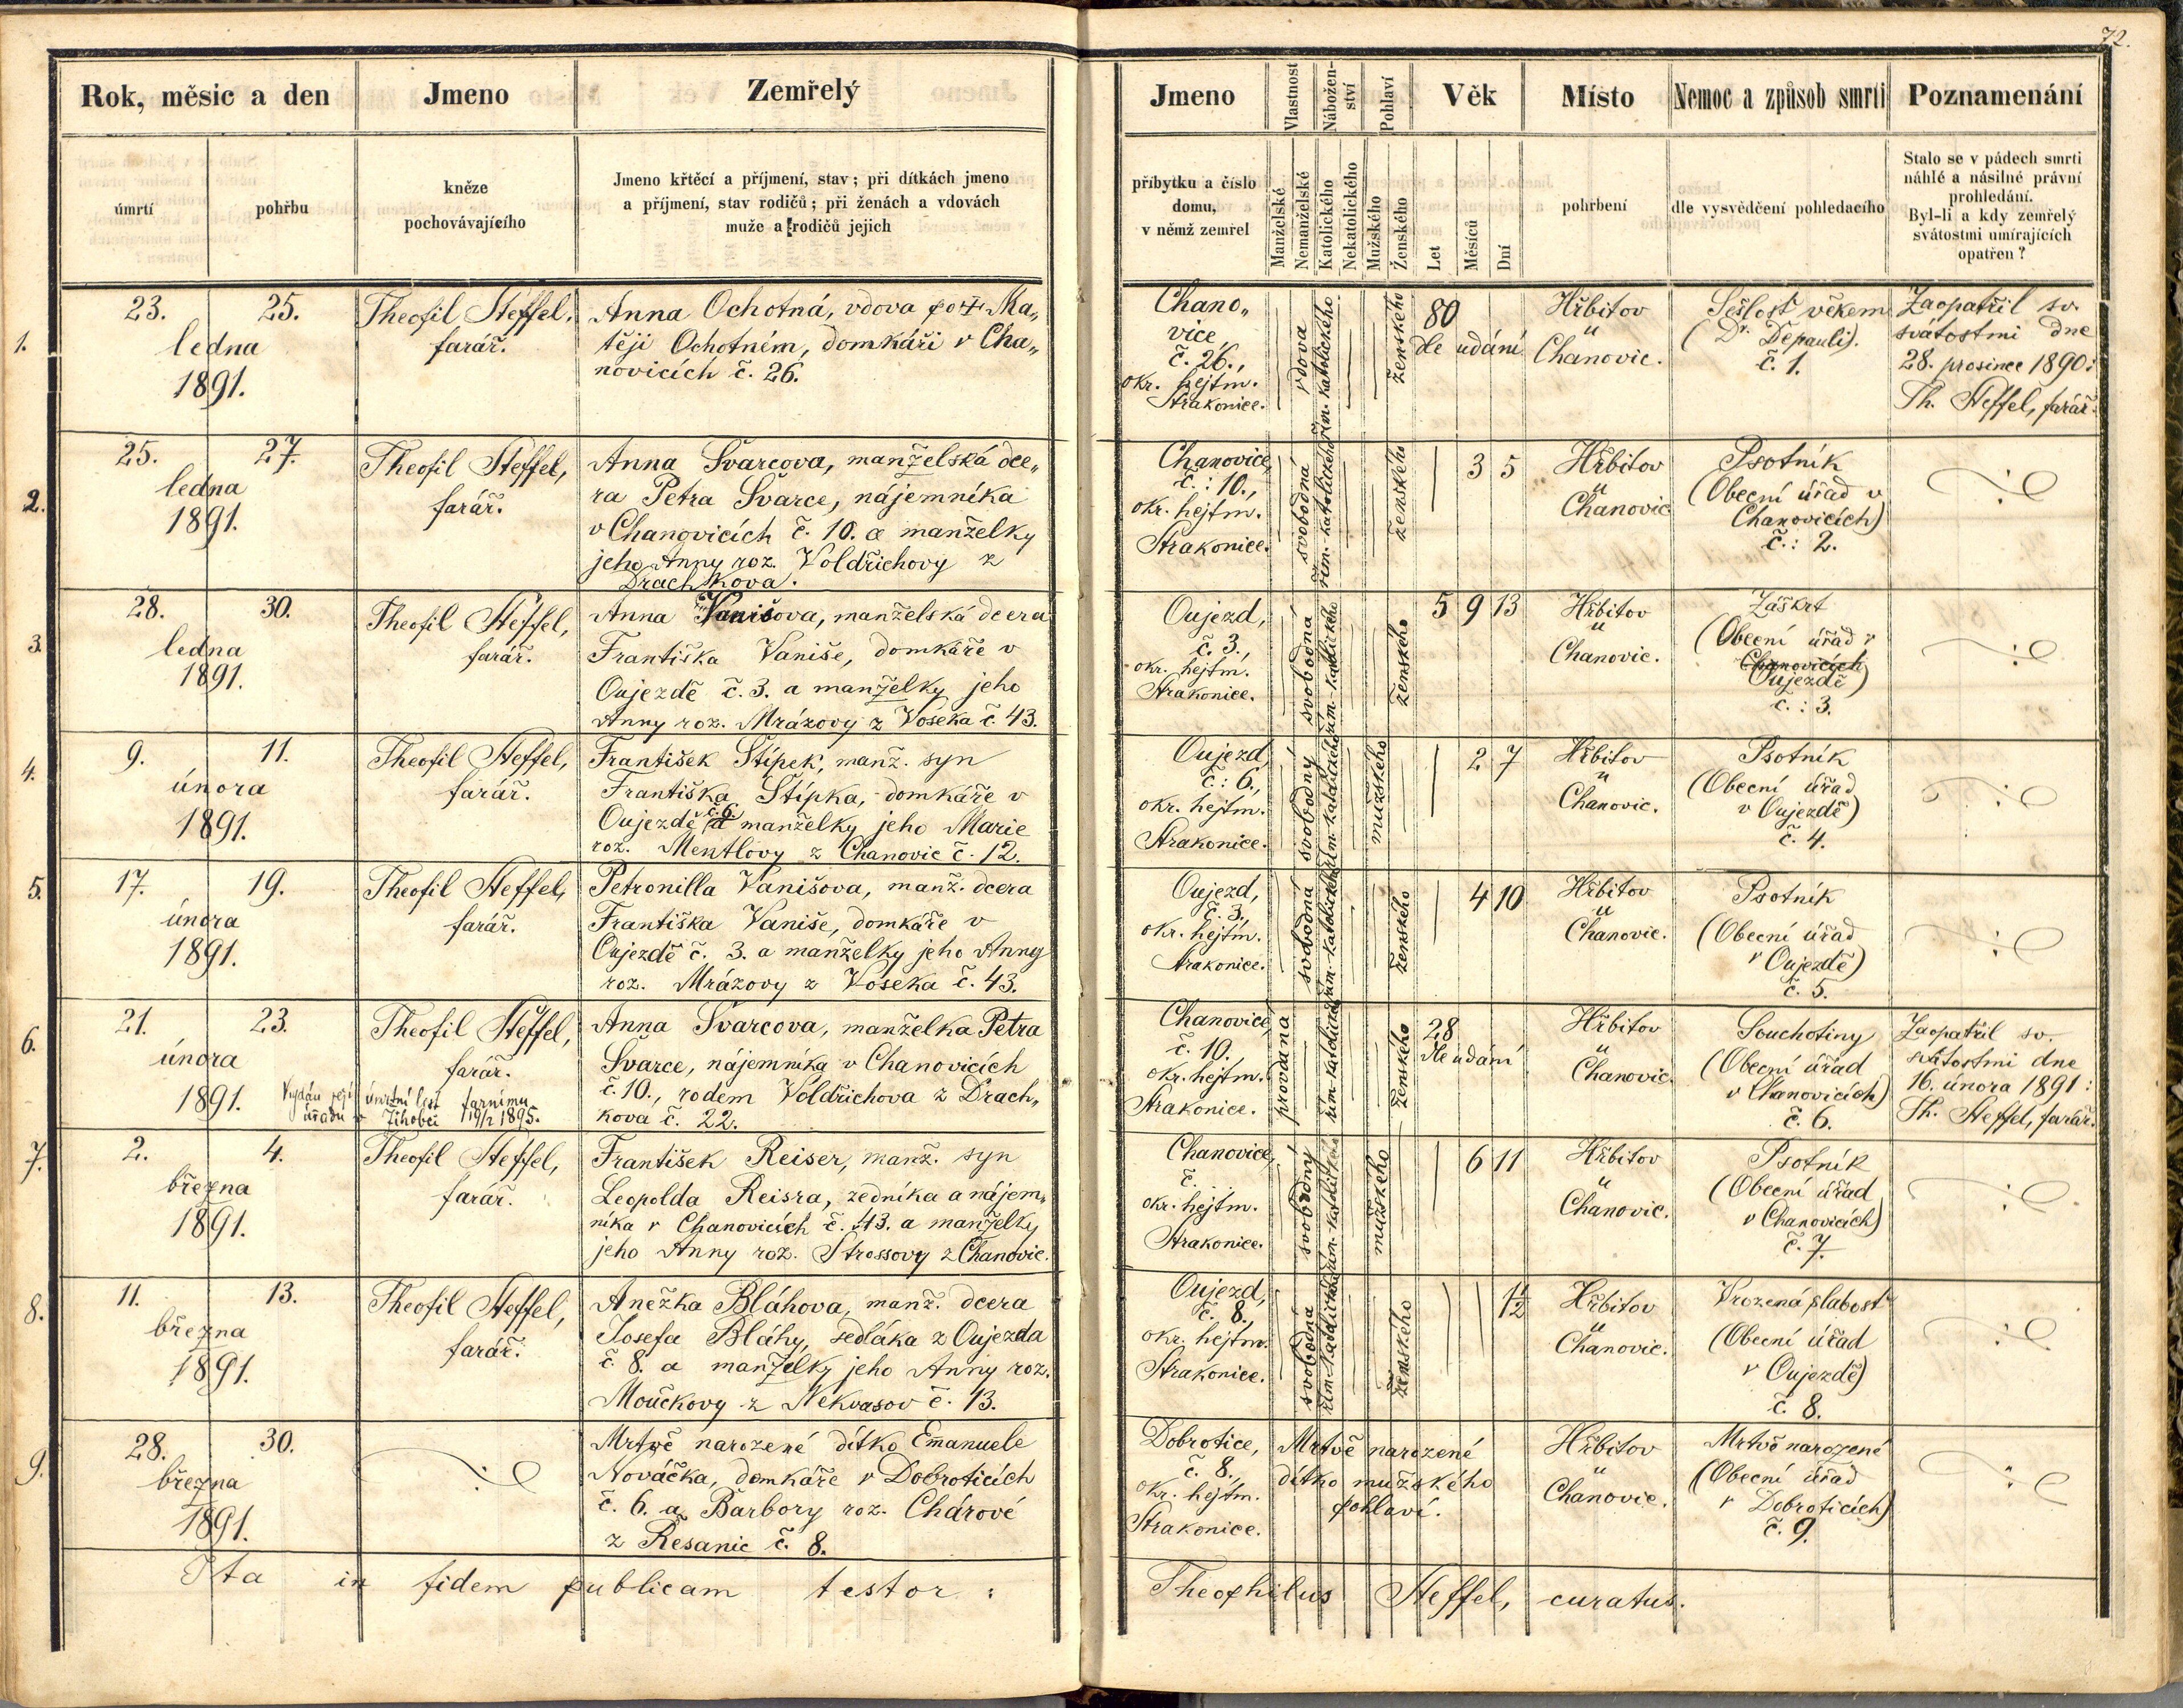 72.
Rok, měsíc a den
Jmeno
Zemřelý
Jmeno
Vlastnost
Nábožen-
ství
Pohlaví
Věk
Místo
Nemoc a způsob smrti
Poznamenání
úmrtí
pohřbu
kněze
pochovávajícího
Jmeno křtěcí a příjmení, stav; při dítkách jmeno
a příjmení, stav rodičů; při ženách a vdovách
muže a rodičů jejich
příbytku a číslo
domu,
v němž zemřel
Manželské
Nemanželské
Katolického
Nekatolického
Mužského
Ženského
Let
Měsíců
Dní
pohrbení
dle vysvědčení pohledacího
Stalo se v pádech smrti
náhlé a násilné právní
prohledání.
Byl-li a kdy zemřelý
svátostmi umírajících
opatřen?
1.
23. 25.
ledna
1891.
Theofil Steffel,
farář.
Anna Ochotná, vdova po † Ma„
těji Ochotném, domkáři v Cha„
novicích č. 26.
Chano„
vice
č. 26.,
okr. hejtm.
Strakonice.
vdova
řím. katolického
ženského
80
dle udání
Hřbitov
u
Chanovic.
Sešlost věkem
(Dr. Depauli).
č. 1.
Zaopatřil sv.
svátostmi dne
28. prosince 1890:
Th. Steffel, farář.
2.
25. 27.
ledna
1891.
Theofil Steffel,
farář.
Anna Švarcova, manželská dce„
ra Petra Švarce, nájemníka
v Chanovicích č. 10. a manželky
jeho Anny roz. Voldřichovy z
Drachkova.
Chanovice,
č.: 10.,
okr. hejtm.
Strakonice.
svobodná
řím. katolického
ženského
3 5
Hřbitov
u
Chanovic
Psotník
(Obecní úřad v
Chanovicích)
č.: 2.
3.
28. 30.
ledna
1891.
Theofil Steffel,
farář.
Anna Vanišova, manželská dcera
Františka Vaniše, domkáře v
Oujezdě č. 3. a manželky jeho
Anny roz. Mrázovy z Voseka č. 43.
Oujezd,
č. 3.,
okr. hejtm.
Strakonice.
svobodná
řím. katolického
ženského
5 9 13
Hřbitov
u
Chanovic.
Záškrt
(Obecní úřad v
Chanovicích
Oujezdě)
č.: 3.
4.
9. 11.
února
1891.
Theofil Steffel,
farář.
František Štípek, manž. syn
Františka Štípka, domkáře v
Oujezdě č. 6. a manželky jeho Marie
roz. Mentlovy z Chanovic č. 12.
Oujezd,
č.: 6.,
okr. hejtm.
Strakonice.
svobodný
řím. katolického
mužského
2 7
Hřbitov
u
Chanovic.
Psotník
(Obecní úřad
v Oujezdě)
č. 4.
5.
17. 19.
února
1891.
Theofil Steffel,
farář.
Petronilla Vanišova, manž. dcera
Františka Vaniše, domkáře v
Oujezdě č. 3. a manželky jeho Anny
roz. Mrázovy z Voseka č. 43.
Oujezd,
č. 3.,
okr. hejtm.
Strakonice.
svobodná
řím. katolického
ženského
4 10
Hřbitov
u
Chanovic.
Psotník
(Obecní úřad
v Oujezdě)
č. 5.
6.
21. 23.
února
1891.
Vydán její úmrtní list farnímu
úřadu v Žihobci 19/2 1895.
Theofil Steffel,
farář.
Anna Švarcova, manželka Petra
Švarce, nájemníka v Chanovicích
č. 10., rodem Voldřichova z Drach„
kova č. 22.
Chanovice,
č. 10.
okr. hejtm.
Strakonice.
provdana
řím. katolického
ženského
28
dle udání
Hřbitov
u
Chanovic.
Souchotiny
(Obecní úřad
v Chanovicích)
č. 6.
Zaopatřil sv.
svátostmi dne
16. února 1891:
Th. Steffel, farář.
7.
2. 4.
března
1891.
Theofil Steffel,
farář.
František Reiser, manž. syn
Leopolda Reisra, zedníka a nájem„
níka v Chanovicích č. 43. a manželky
jeho Anny roz. Strossovy z Chanovic.
Chanovice,
č.
okr. hejtm.
Strakonice.
svobodný
řím. katolického
mužského
6 11
Hřbitov
u
Chanovic.
Psotník
(Obecní úřad
v Chanovicích)
č. 7.
8.
11. 13.
března
1891.
Theofil Steffel,
farář.
Anežka Bláhova, manž. dcera
Josefa Bláhy, sedláka z Oujezda
č. 8. a manželky jeho Anny roz.
Moučkovy z Nekvasov č. 13.
Oujezd,
č. 8.,
okr. hejtm.
Strakonice.
svobodná
řím. katolického
ženského
1/2
Hřbitov
u
Chanovic.
Vrozená slabost
(Obecní úřad
v Oujezdě)
č. 8.
9.
28. 30.
března
1891.
Mrtvě narozené dítko Emanuele
Nováčka, domkáře v Dobroticích
č. 6. a Barbory roz. Chárové
z Řesanic č. 8.
Dobrotice,
č. 8.,
okr. hejtm.
Strakonice.
Mrtvě narozené
dítko mužského
pohlaví.
Hřbitov
u
Chanovic.
Mrtvě narozené
(Obecní úřad
v Dobroticích)
č. 9.
Ita in fidem publicam testor:
Theophilus Steffel, curatus.